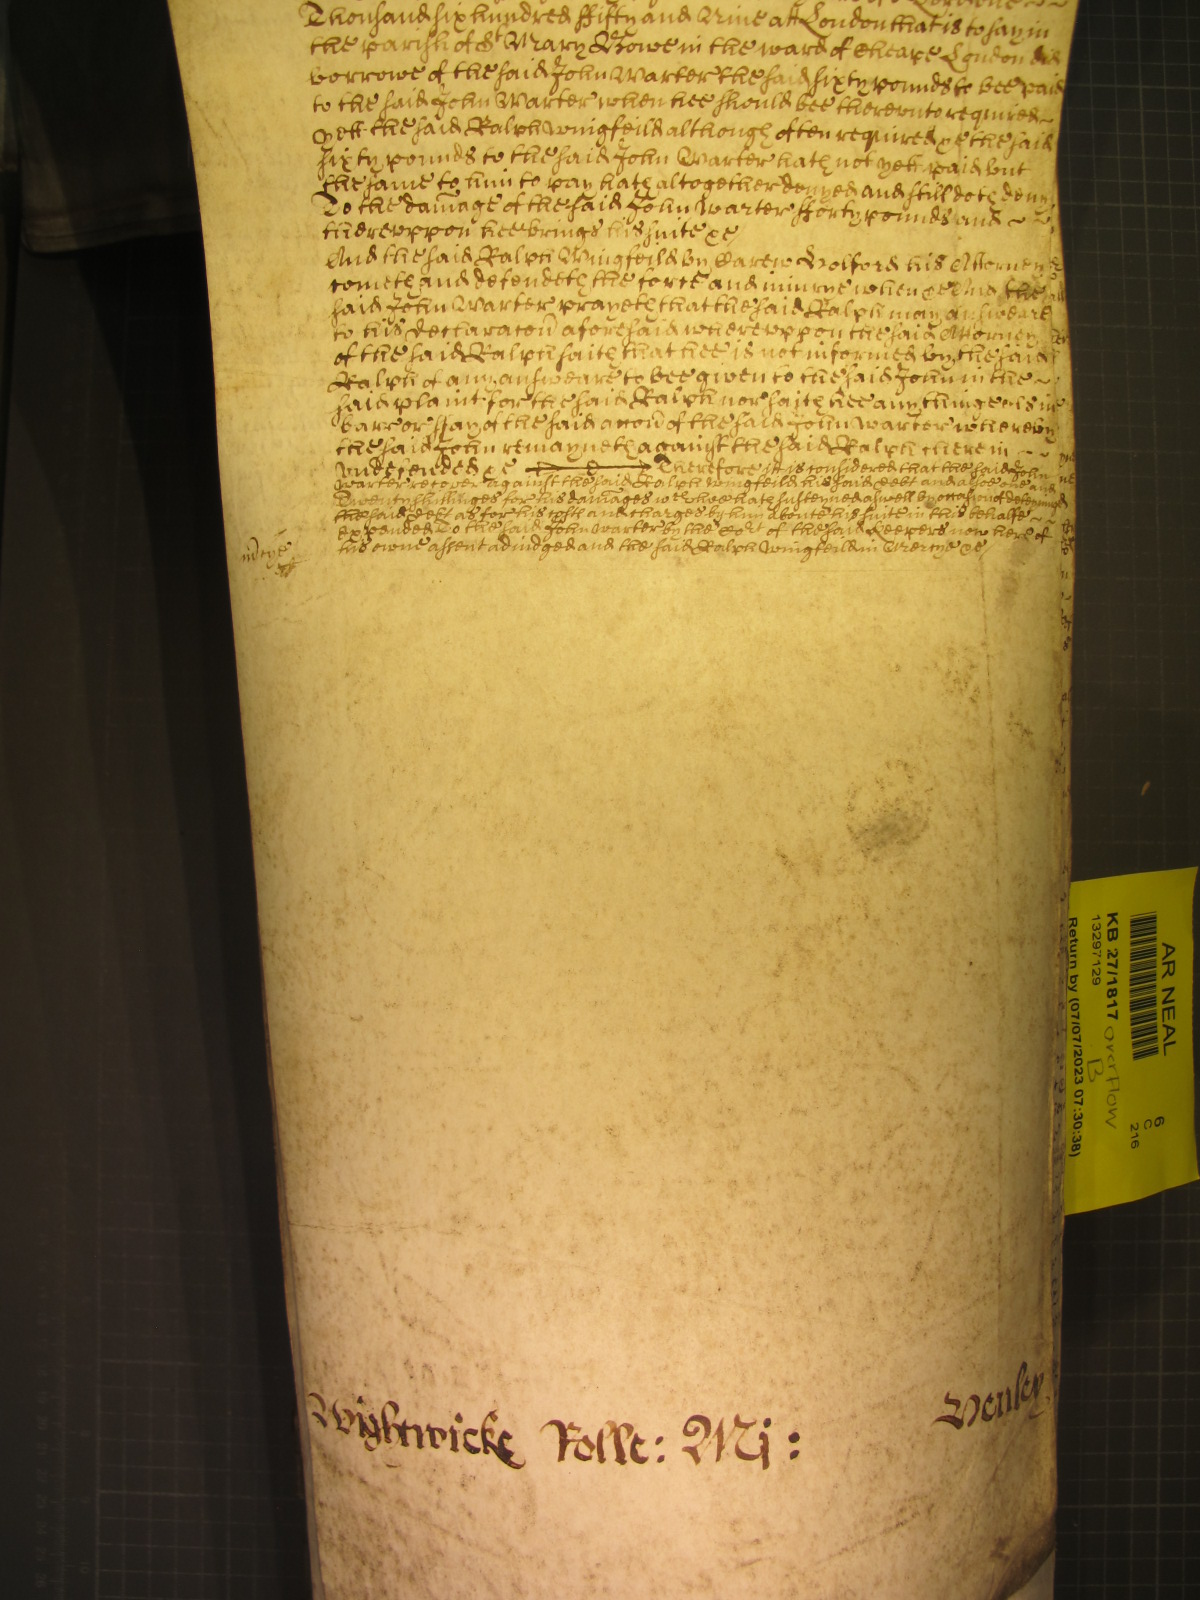 Thousand six hundred ffifty and Nine att London that is to say in
the parish of St Mary Bowe in the ward of Cheape London did
borrowe of the said John Warter the said sixty pounds to bee paid
to the said John Warter when hee should bee thereunto required
yett the said Ralph Wingfeild although often required &c the said
sixty pounds to the said John Warter hath not yett paid but
the same to him to pay hath altogether denyed and still doth deny
To the damage of the said John Warter fforty pounds and
thereuppon hee brings his suite &c
And the said Ralph Wingfeild by Carew his Attorney
cometh and defendeth the force and iniurye when &c And the
said John Warter prayeth that the said Ralph may answeare
to his declaration aforesaid whereuppon the said Attorney
of the said Ralph saith that hee is not informed by the said
Ralph of any answeare to bee given to the said John in the
said plaint for the said Ralph nor saith hee any thinge els in
barr or stay of the said accon of the said John Warter whereby
the said John remayneth against the said Ralph therein
undefended &c Therefore it is considered that the said John
Warter recover against the said Ralph Wingfeild his said debt and alsoe
Twenty shillinges for his damages wch hee hath susteyned aswell by occasion of deteyning
the said debt as for his costs and charges by him aboute his suite in this behalfe
expended To the said John Warter by the Court of the said Keepers now here of
his owne assent adiudged and the said Ralph Wingfeild in Mercye &c
Wightwicke Rolle: Mj: Henley
AR NEAL
KB 27/1817 overflow
B
13297129
Return by (07/07/2023 07:30:38)
6
C
216